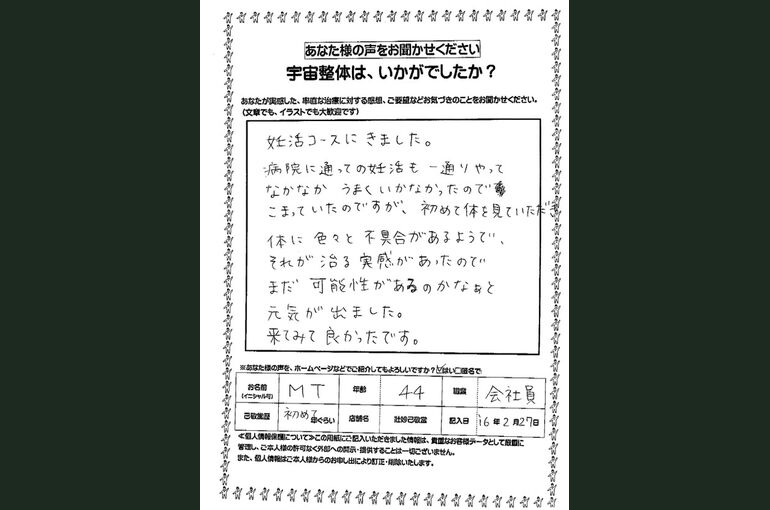 あなた様の声をお聞かせください
宇宙整体は、いかがでしたか？
あなたが実感した、率直な治療に対する感想、ご要望などお気づきのことをお聞かせください。
（文章でも、イラストでも大歓迎です）
妊活コースにきました。
病院に通っての妊活も一通りやって
なかなか うまくいかなかったので
こまっていたのですが、初めて体を見ていただき
体に色々と不具合があるようで、
それが治る実感があったので
まだ可能性があるのかなぁと
元気が出ました。
来てみて良かったです。
※あなた様の声を、ホームページなどでご紹介してもよろしいですか？☑はい□匿名で
お名前 （イニシャル可） MT 年齢 44 職業 会社員
己敬業歴 初めて 年ぐらい 店舗名 壮妙己敬営 記入日 '16年2月27日
≪個人情報保護について≫この用紙にご記入いただきました情報は、貴重なお客様データとして厳重に
管理し、ご本人様の許可なく外部への開示・提供することは一切ございません。
また、個人情報はご本人様からのお申し出により訂正・削除いたします。